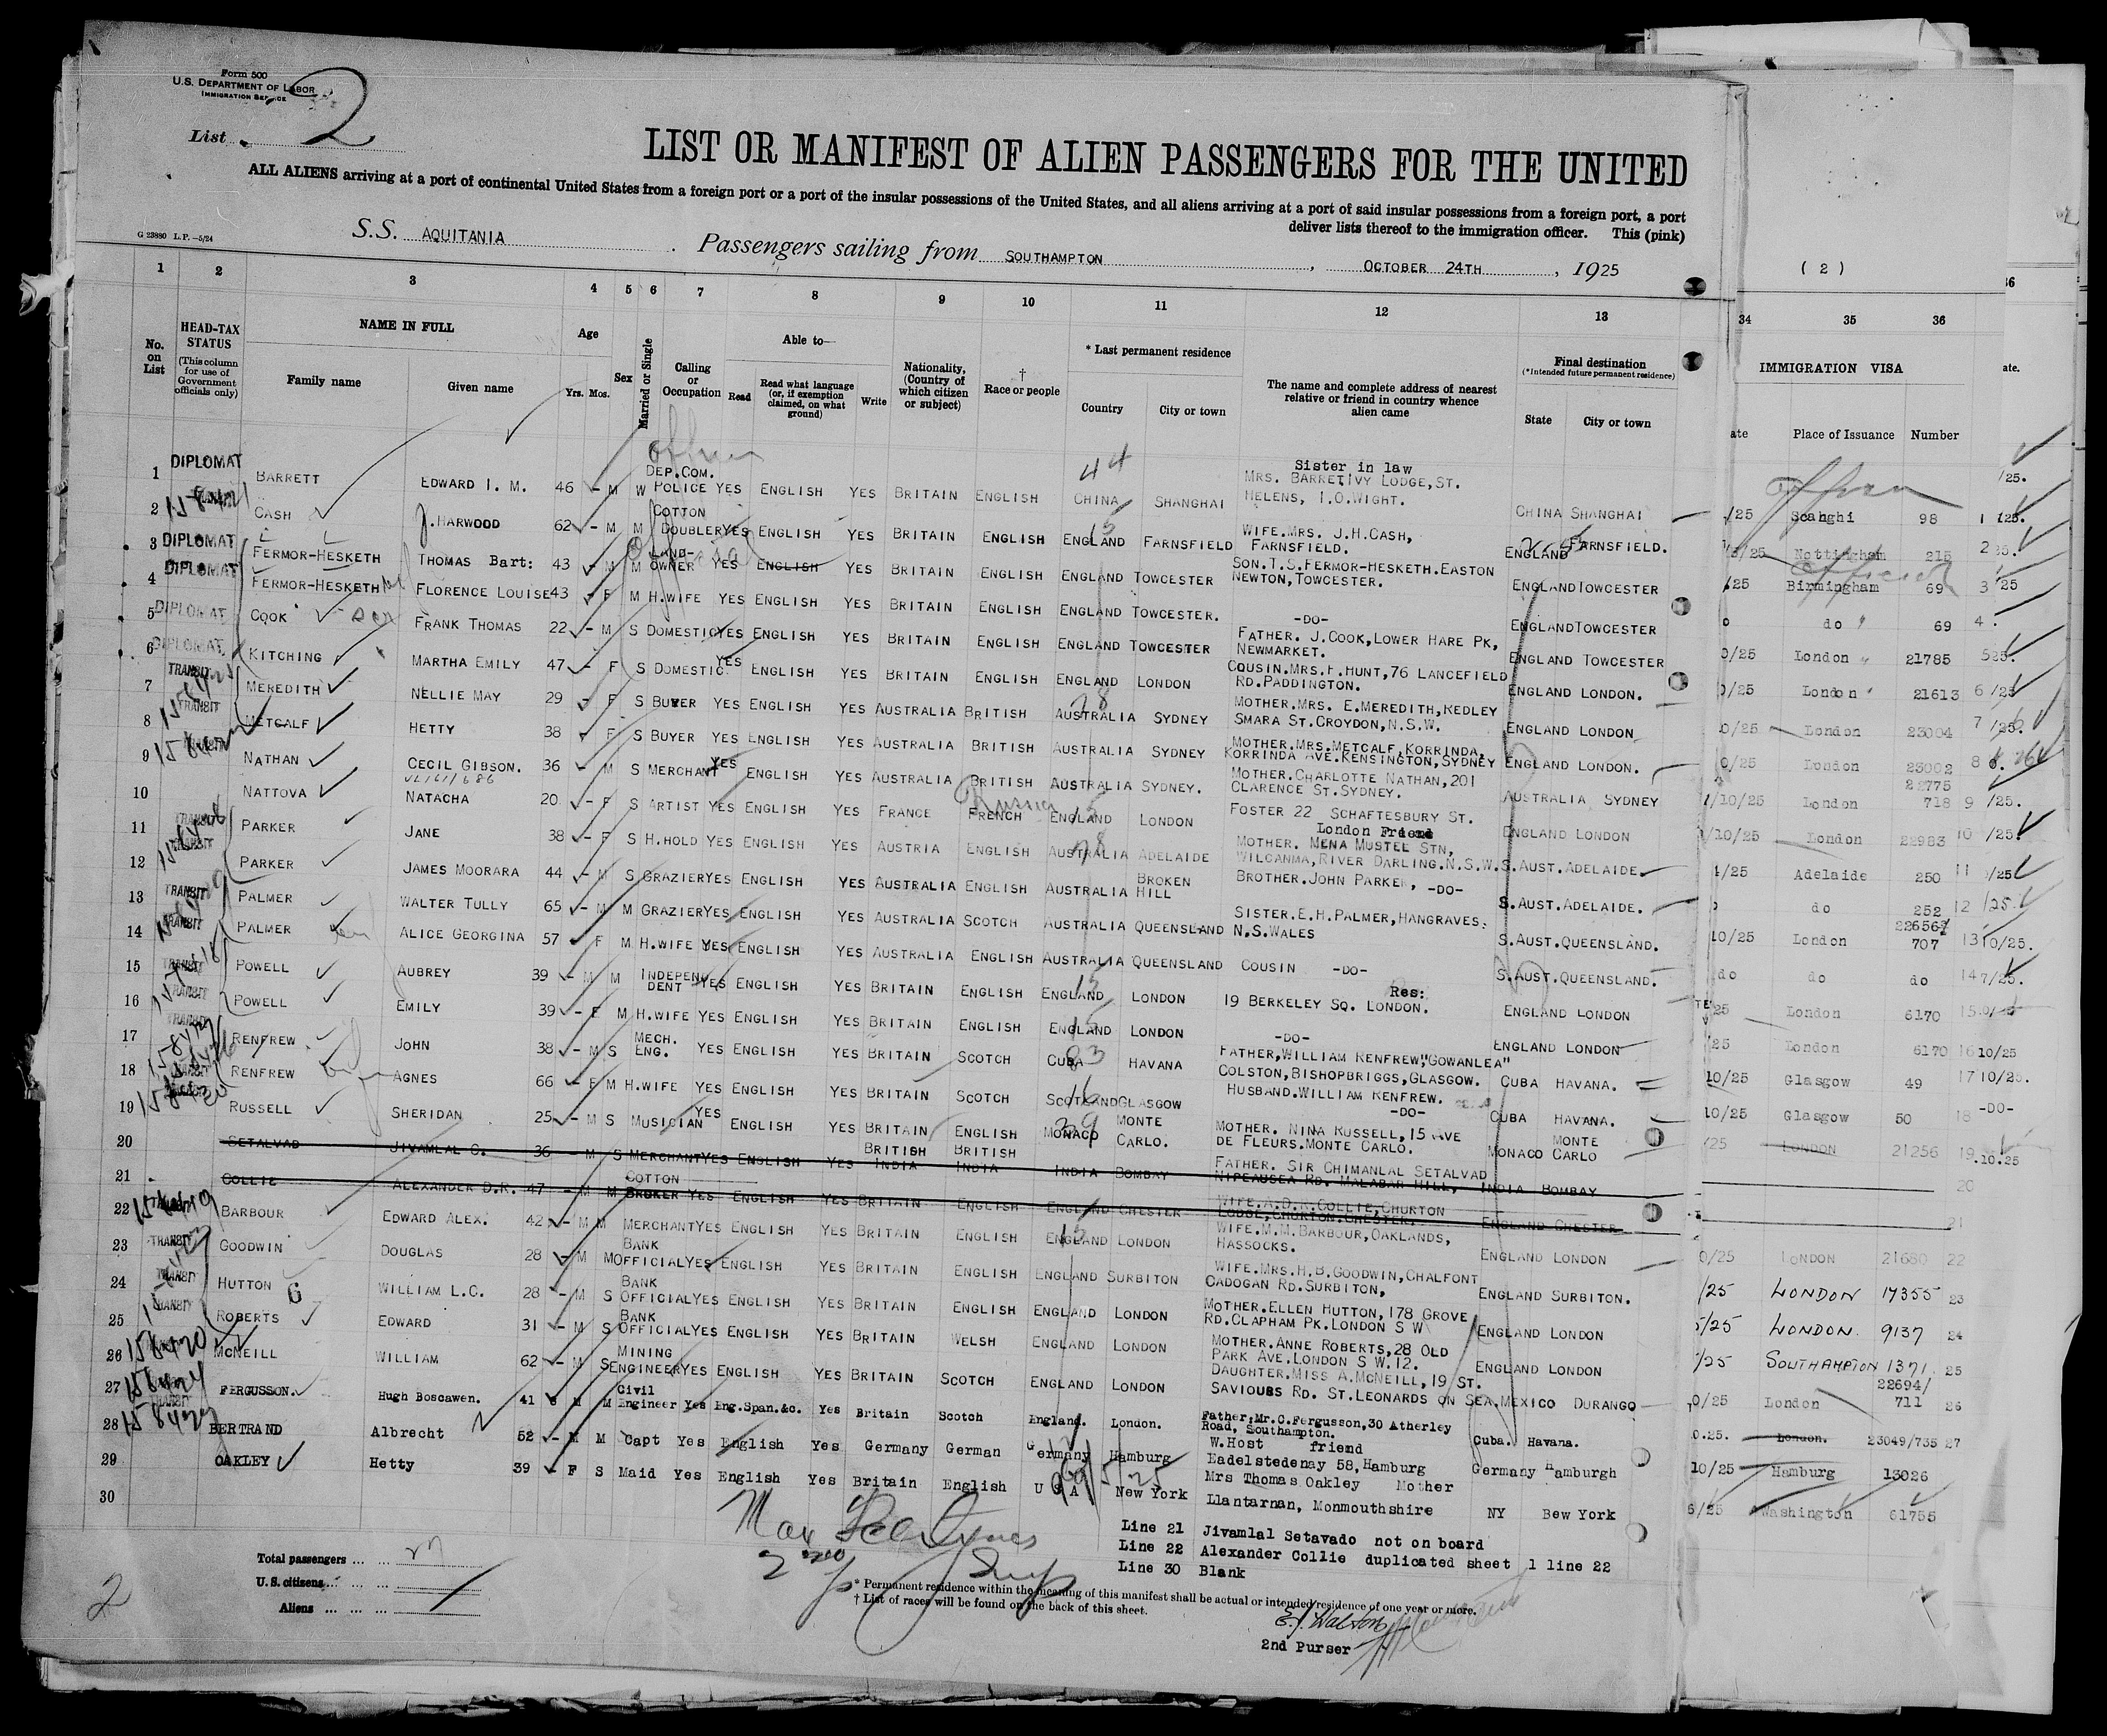 Form 500
U.S. DEPARTMENT OF LABOR
IMMIGRATION SERVICE
List 2
LIST OR MANIFEST OF ALIEN PASSENGERS FOR THE UNITED
ALL ALIENS arriving at a port of continental United States from a foreign port or a port of the insular possessions of the United States, and all aliens arriving at a port of said insular possessions from a foreign port, a port
deliver lists thereof to the immigration officer. This (pink)
G 23880 L.P.—5/24
S.S. AQUITANIA Passengers sailing from SOUTHAMPTON, OCTOBER 24TH, 1925
( 2 )
1 2 3 4 5 6 7 8 9 10 11 12 13 34 35 36
No. on List
HEAD-TAX STATUS
(This column for use of Government officials only)
NAME IN FULL
Family name Given name
Age
Yrs. Mos.
Sex
Married or Single
Calling or Occupation
Able to—
Read
Read what language (or, if exemption claimed, on what ground)
Write
Nationality, (Country of which citizen or subject)
† Race or people
* Last permanent residence
Country City or town
The name and complete address of nearest relative or friend in country whence alien came
Final destination
(*Intended future permanent residence)
State City or town
IMMIGRATION VISA
ate Place of Issuance Number
ate.
1 DIPLOMAT BARRETT EDWARD I. M. 46 - M W DEP.COM. POLICE YES ENGLISH YES BRITAIN ENGLISH CHINA SHANGHAI Sister in law MRS. BARRETIVY LODGE,ST. HELENS, I.O.WIGHT. CHINA SHANGHAI /25 Scahghi 98 1
2 CASH J.HARWOOD 62 - M M COTTON DOUBLER YES ENGLISH YES BRITAIN ENGLISH ENGLAND FARNSFIELD WIFE.MRS. J.H.CASH, FARNSFIELD. ENGLAND FARNSFIELD. /25 Nottingham 215 2
3 DIPLOMAT FERMOR-HESKETH THOMAS Bart: 43 - M M LAND-OWNER YES ENGLISH YES BRITAIN ENGLISH ENGLAND TOWCESTER SON.T.S.FERMOR-HESKETH.EASTON NEWTON,TOWCESTER. ENGLAND TOWCESTER /25 Birmingham 69 3
4 DIPLOMAT FERMOR-HESKETH FLORENCE LOUISE 43 - F M H.WIFE YES ENGLISH YES BRITAIN ENGLISH ENGLAND TOWCESTER. -DO- ENGLAND TOWCESTER do 69 4
5 DIPLOMAT COOK FRANK THOMAS 22 - M S DOMESTIC YES ENGLISH YES BRITAIN ENGLISH ENGLAND TOWCESTER FATHER. J.COOK,LOWER HARE PK, NEWMARKET. ENGLAND TOWCESTER 0/25 London 21785 5
6 DIPLOMAT KITCHING MARTHA EMILY 47 - F S DOMESTIC YES ENGLISH YES BRITAIN ENGLISH ENGLAND LONDON COUSIN.MRS.F.HUNT,76 LANCEFIELD RD.PADDINGTON. ENGLAND LONDON. 0/25 London 21613 6
7 TRANSIT MEREDITH NELLIE MAY 29 - F S BUYER YES ENGLISH YES AUSTRALIA BRITISH AUSTRALIA SYDNEY MOTHER.MRS. E.MEREDITH,KEDLEY SMARA ST.CROYDON,N.S.W. ENGLAND LONDON 0/25 London 23004 7
8 TRANSIT METCALF HETTY 38 - F S BUYER YES ENGLISH YES AUSTRALIA BRITISH AUSTRALIA SYDNEY MOTHER.MRS.METCALF,KORRINDA, KORRINDA AVE.KENSINGTON,SYDNEY ENGLAND LONDON. 0/25 London 23002 8
9 NATHAN CECIL GIBSON. 36 - M S MERCHANT YES ENGLISH YES AUSTRALIA BRITISH AUSTRALIA SYDNEY. MOTHER.CHARLOTTE NATHAN,201 CLARENCE ST.SYDNEY. AUSTRALIA SYDNEY /10/25 London 22775 718 9
10 NATTOVA NATACHA 20 - F S ARTIST YES ENGLISH YES FRANCE FRENCH Russia ENGLAND LONDON FOSTER 22 SCHAFTESBURY ST. London Friend ENGLAND LONDON /10/25 London 22983 10
11 TRANSIT PARKER JANE 38 - F S H.HOLD YES ENGLISH YES AUSTRIA ENGLISH AUSTRALIA ADELAIDE MOTHER. MENA MUSTEL STN, WILCANMA,RIVER DARLING.N.S.W. S.AUST.ADELAIDE. /25 Adelaide 250 11
12 TRANSIT PARKER JAMES MOORARA 44 - M S GRAZIER YES ENGLISH YES AUSTRALIA ENGLISH AUSTRALIA BROKEN HILL BROTHER.JOHN PARKER, -DO- S.AUST.ADELAIDE. do 252 12
13 TRANSIT PALMER WALTER TULLY 65 - M M GRAZIER YES ENGLISH YES AUSTRALIA SCOTCH AUSTRALIA QUEENSLAND SISTER.E.H.PALMER,HANGRAVES. N.S.WALES S.AUST.QUEENSLAND. 10/25 London 707 13
14 TRANSIT PALMER ALICE GEORGINA 57 F M H.WIFE YES ENGLISH YES AUSTRALIA ENGLISH AUSTRALIA QUEENSLAND COUSIN -DO- S.AUST.QUEENSLAND. do do do 14
15 TRANSIT POWELL AUBREY 39 - M M INDEPENDENT YES ENGLISH YES BRITAIN ENGLISH ENGLAND LONDON Res: 19 BERKELEY SQ. LONDON. ENGLAND LONDON 25 London 6170 15
16 TRANSIT POWELL EMILY 39 - F M H.WIFE YES ENGLISH YES BRITAIN ENGLISH ENGLAND LONDON -DO- ENGLAND LONDON 25 London 6170 16
17 TRANSIT RENFREW JOHN 38 - M S MECH. ENG. YES ENGLISH YES BRITAIN SCOTCH CUBA HAVANA FATHER,WILLIAM RENFREW,"GOWANLEA" COLSTON,BISHOPBRIGGS,GLASGOW. CUBA HAVANA. 10/25 Glasgow 49 17
18 TRANSIT RENFREW AGNES 66 - F M H.WIFE YES ENGLISH YES BRITAIN SCOTCH SCOTLAND GLASGOW HUSBAND.WILLIAM RENFREW. -DO- CUBA HAVANA. 10/25 Glasgow 50 18 -DO-
19 RUSSELL SHERIDAN 25 - M S MUSICIAN YES ENGLISH YES BRITAIN ENGLISH MONACO MONTE CARLO. MOTHER. NINA RUSSELL,15 AVE DE FLEURS.MONTE CARLO. MONACO MONTE CARLO /25 LONDON 21256 19
20 SETALVAD JIVAMLAL C. 36 - M S MERCHANT YES ENGLISH YES BRITISH INDIA BRITISH INDIA INDIA BOMBAY FATHER. SIR CHIMANLAL SETALVAD NIPEAUSEA RD. MALABAR HILL, INDIA BOMBAY 20
21 COLLIE ALEXANDER D.R. 47 - M M COTTON BROKER YES ENGLISH YES BRITAIN ENGLISH ENGLAND CHESTER WIFE.A.D.R.COLLIE,CHURTON LODGE,CHURTON.CHESTER. ENGLAND CHESTER 21
22 BARBOUR EDWARD ALEX. 42 - M M MERCHANT YES ENGLISH YES BRITAIN ENGLISH ENGLAND LONDON WIFE.M.M.BARBOUR,OAKLANDS, HASSOCKS. ENGLAND LONDON 0/25 LONDON 21680 22
23 TRANSIT GOODWIN DOUGLAS 28 - M M BANK OFFICIAL YES ENGLISH YES BRITAIN ENGLISH ENGLAND SURBITON WIFE.MRS.H.B.GOODWIN,CHALFONT CADOGAN RD.SURBITON, ENGLAND SURBITON. /25 LONDON 17355 23
24 TRANSIT HUTTON WILLIAM L.C. 28 - M S BANK OFFICIAL YES ENGLISH YES BRITAIN ENGLISH ENGLAND LONDON MOTHER.ELLEN HUTTON,178 GROVE RD.CLAPHAM PK.LONDON S W ENGLAND LONDON 5/25 LONDON. 9137 24
25 TRANSIT ROBERTS EDWARD 31 - M S BANK OFFICIAL YES ENGLISH YES BRITAIN WELSH ENGLAND LONDON MOTHER.ANNE ROBERTS,28 OLD PARK AVE.LONDON S W.12. ENGLAND LONDON /25 SOUTHAMPTON 1371. 25
26 MCNEILL WILLIAM 62 - M S MINING ENGINEER YES ENGLISH YES BRITAIN SCOTCH ENGLAND LONDON DAUGHTER.MISS A.MCNEILL,19 ST. SAVIOURS RD. ST.LEONARDS ON SEA. MEXICO DURANGO 0/25 London 22694/711 26
27 FERGUSSON. Hugh Boscawen. 41 6 M M Civil Engineer Yes Eng.Span.&c. Yes Britain Scotch England. London. Father:Mr.C.Fergusson,30 Atherley Road, Southampton. Cuba. Havana. 0.25. London. 23049/735 27
28 BERTRAND Albrecht 52 - M M Capt Yes English Yes Germany German Germany Hamburg W.Host friend Eadelstedenay 58,Hamburg Germany Hamburgh 10/25 Hamburg 13026
29 OAKLEY Hetty 39 - F S Maid Yes English Yes Britain English U S A New York Mrs Thomas Oakley Mother Llantarnan, Monmouthshire NY Bew York 6/25 Washington 61755
30
Line 21 Jivamlal Setavado not on board
Line 22 Alexander Collie duplicated sheet 1 line 22
Line 30 Blank
Total passengers
U.S. citizens
Aliens
2
* Permanent residence within the meaning of this manifest shall be actual or intended residence of one year or more.
† List of races will be found on the back of this sheet.
E.J. Walton
2nd Purser